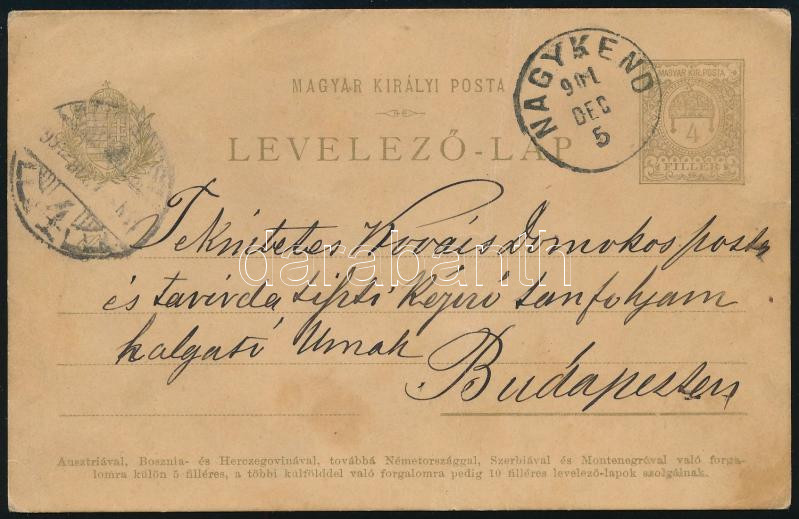 MAGYAR KIRÁLYI POSTA
LEVELEZŐ-LAP
NAGYKEND
901
DEC
5
MAGY. KIR. POSTA
4
FILLÉR
Tekintetes Kovács Domokos posta
és távirda tiszti képző tanfolyam
halgató Urnak
Budapesten
darabanth
Ausztriával, Bosznia- és Herczegovinával, továbbá Németországgal, Szerbiával és Montenegróval való forga-
lomra külön 5 filléres, a többi külfölddel való forgalomra pedig 10 filléres levelező-lapok szolgálnak.